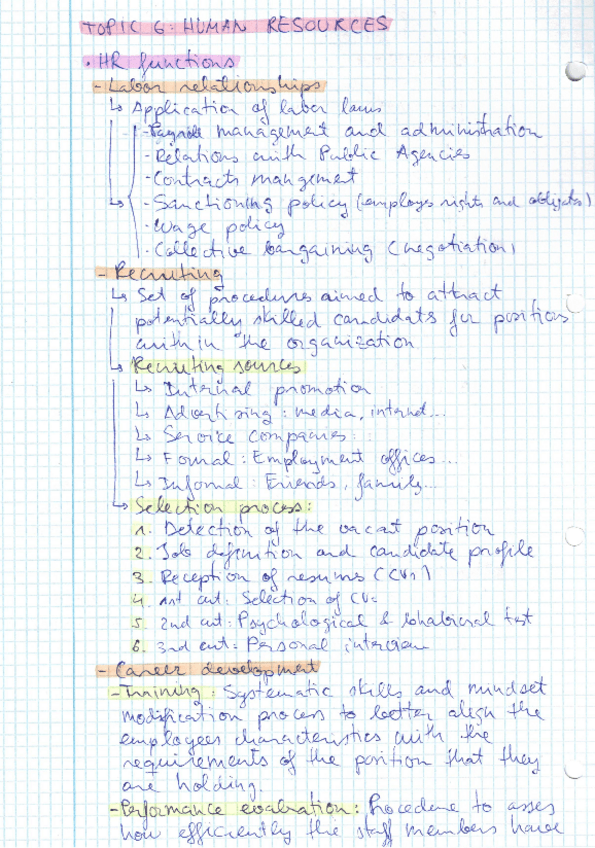 TOPIC 6: HUMAN RESOURCES
· HR functions
- Labor relationships
↳ Application of labor laws
- Payroll management and administration
- Relations with Public Agencies
- Contracts mangement
↳ - Sanctioning policy (employs rights and obligats)
- Wage policy
- Collective bargaining (negotiation)
- Recruiting
↳ Set of procedures aimed to attract
potentially skilled candidats for positions
within the organization
↳ Recruiting sources
↳ Internal promotion
↳ Advertising: media, internet...
↳ Service companies...
↳ Formal: Employment offices...
↳ Informal: Friends, family...
↳ Selection process:
1. Detection of the vacant position
2. Job definition and candidate profile
3. Reception of resums (CVs)
4. 1st cut: Selection of CVs
5. 2nd cut: Psychological & behabioral test
6. 3rd cut: Personal interview
- Career development
- Training: Systematic skills and mindset
modification process to better align the
employees characteristics with the
requirements of the position that they
are holding.
- Performance evaluation: Procedure to asses
how efficiently the staff members have